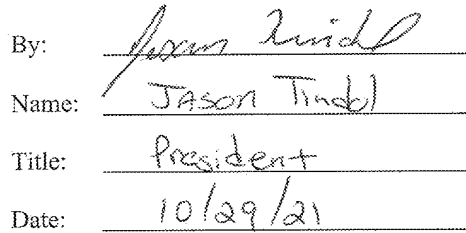 By: Jason Tindol
Name: JASON Tindol
Title: President
Date: 10/29/21